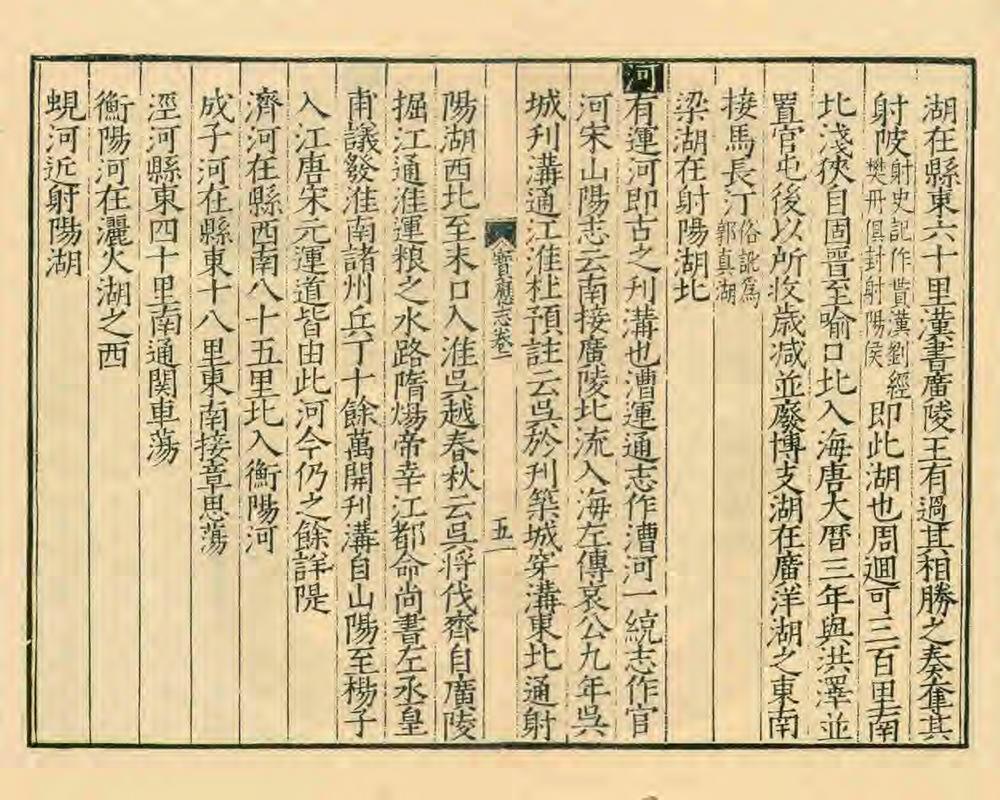 湖在縣東六十里漢書廣陵王有過其相勝之奏奪其
射陂射史記作貰漢劉經樊丹俱封射陽侯即此湖也周廻可三百里南
北淺狹自固晋至喻口北入海唐大曆三年與洪澤並
置官屯後以所收歲減並廢博支湖在廣洋湖之東南
接馬長汀俗訛為郭真湖
梁湖在射陽湖北
河有運河即古之刋溝也漕運通志作漕河一統志作官
河宋山陽志云南接廣陵北流入海左傳哀公九年吳
城刋溝通江淮杜預註云吳於刋築城穿溝東北通射
寳應志卷二
五
陽湖西北至末口入淮吳越春秋云吳將伐齊自廣陵
掘江通淮運粮之水路隋煬帝幸江都命尚書左丞皇
甫議發淮南諸州兵丁十餘萬開刋溝自山陽至楊子
入江唐宋元運道皆由此河今仍之餘詳隄
濟河在縣西南八十五里北入衡陽河
成子河在縣東十八里東南接章思蕩
涇河縣東四十里南通関車蕩
衡陽河在灑火湖之西
蜆河近射陽湖